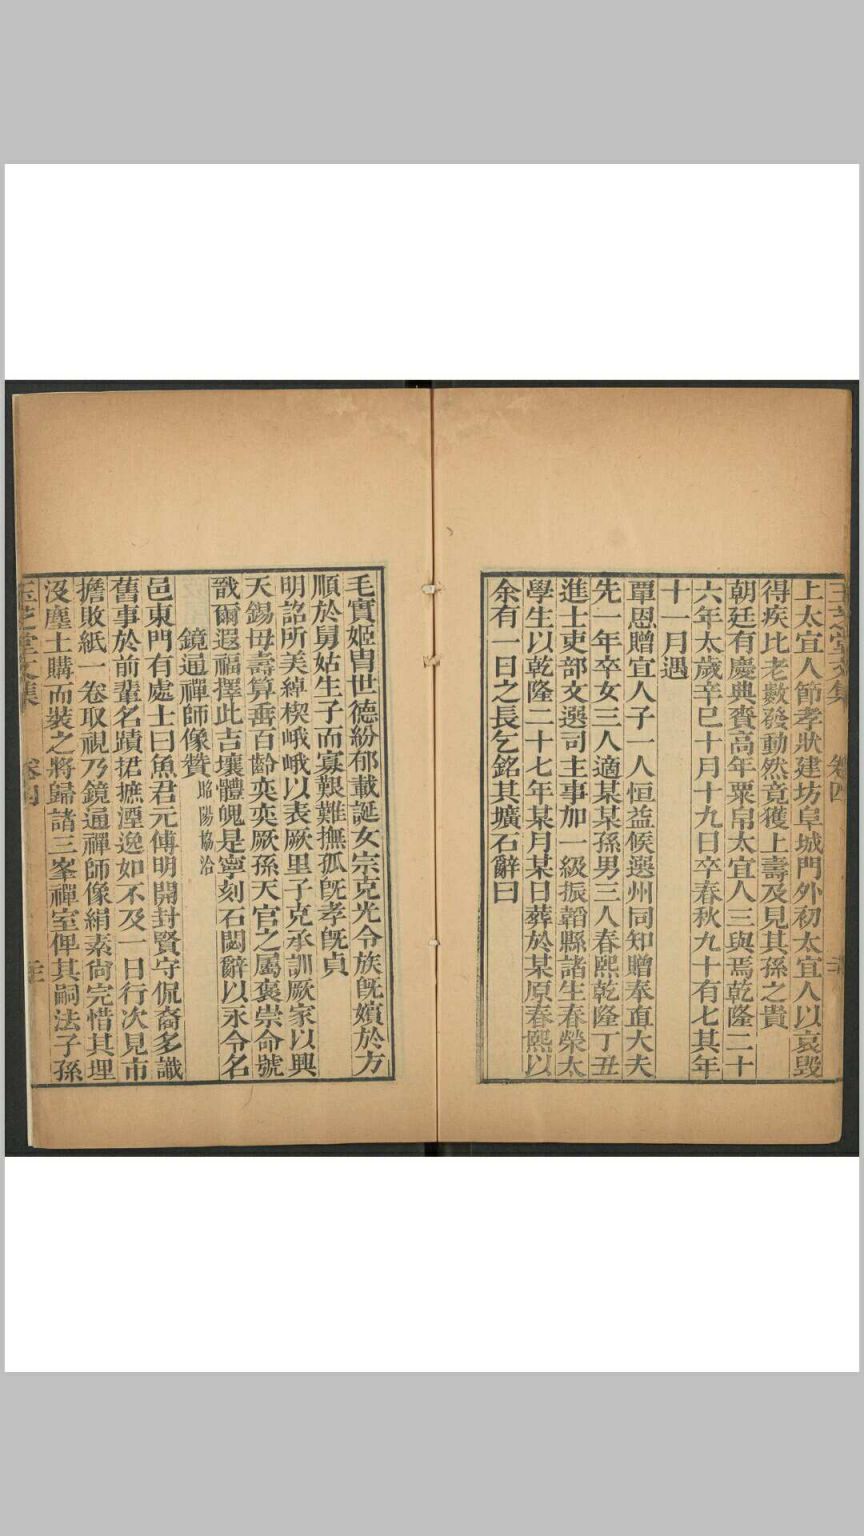 玉芝堂文集　卷四
上太宜人節孝狀建坊阜城門外初太宜人以哀毀
得疾比老數發動然竟獲上壽及見其孫之貴
朝廷有慶典賚高年粟帛太宜人三與焉乾隆二十
六年太歲辛巳十月十九日卒春秋九十有七其年
十一月遇
覃恩贈宜人子一人恒益候選州同知贈奉直大夫
先一年卒女三人適某某孫男三人春熙乾隆丁丑
進士吏部文選司主事加一級振韜縣諸生春榮太
學生以乾隆二十七年某月某日葬於某原春熙以
余有一日之長乞銘其壙石辭曰
毛實姬胄世德紛郁載誕女宗克光令族旣嬪於方
順於舅姑生子而寡艱難撫孤旣孝旣貞
明詔所美綽楔峨峨以表厥里子克承訓厥家以興
天錫毋壽算垂百齡奕奕厥孫天官之屬褒崇命號
戩爾遐福擇此吉壤體魄是寧刻石閟辭以永令名
鏡逼禪師像贊昭陽協洽
邑東門有處士曰魚君元傅明開封賢守侃裔多識
舊事於前輩名蹟捃摭湮逸如不及一日行次見市
擔敗紙一卷取視乃鏡逼禪師像絹素尙完惜其埋
沒塵土購而裝之將歸諸三峯禪室俾其嗣法子孫
玉芝堂文集　卷四